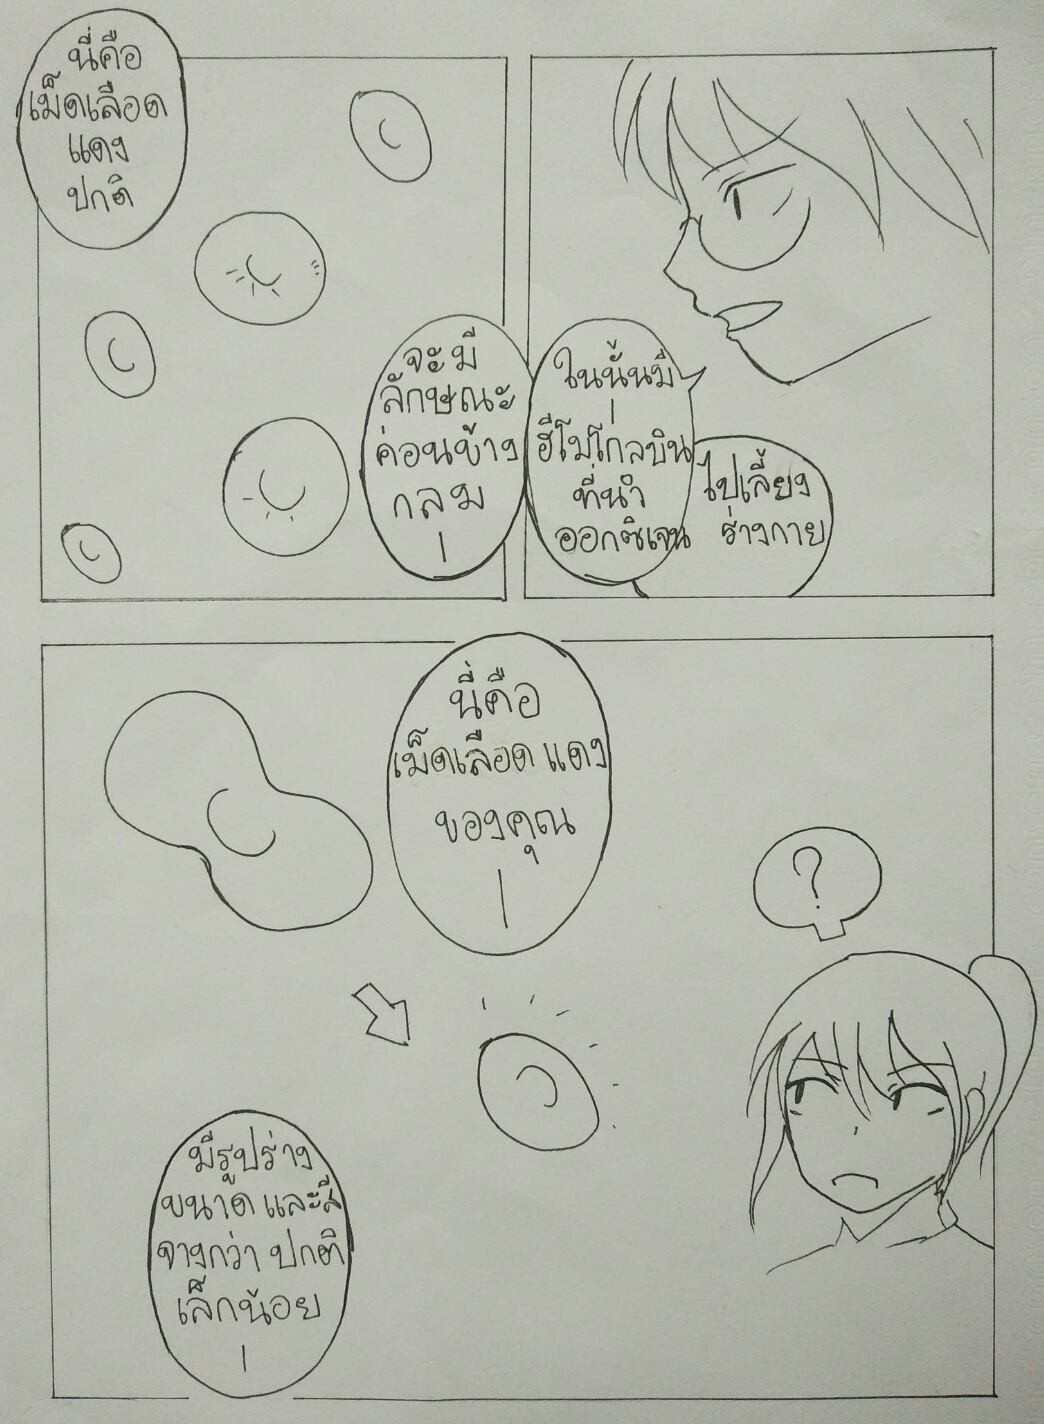 นี่คือ
เม็ดเลือด
แดง
ปกติ
จะมี
ลักษณะ
ค่อนข้าง
กลม
ในนั้นมี
ฮีโมโกลบิน
ที่นำ
ออกซิเจน
ไปเลี้ยง
ร่างกาย
นี่คือ
เม็ดเลือด แดง
ของคุณ
?
มีรูปร่าง
ขนาด และสี
จางกว่า ปกติ
เล็กน้อย